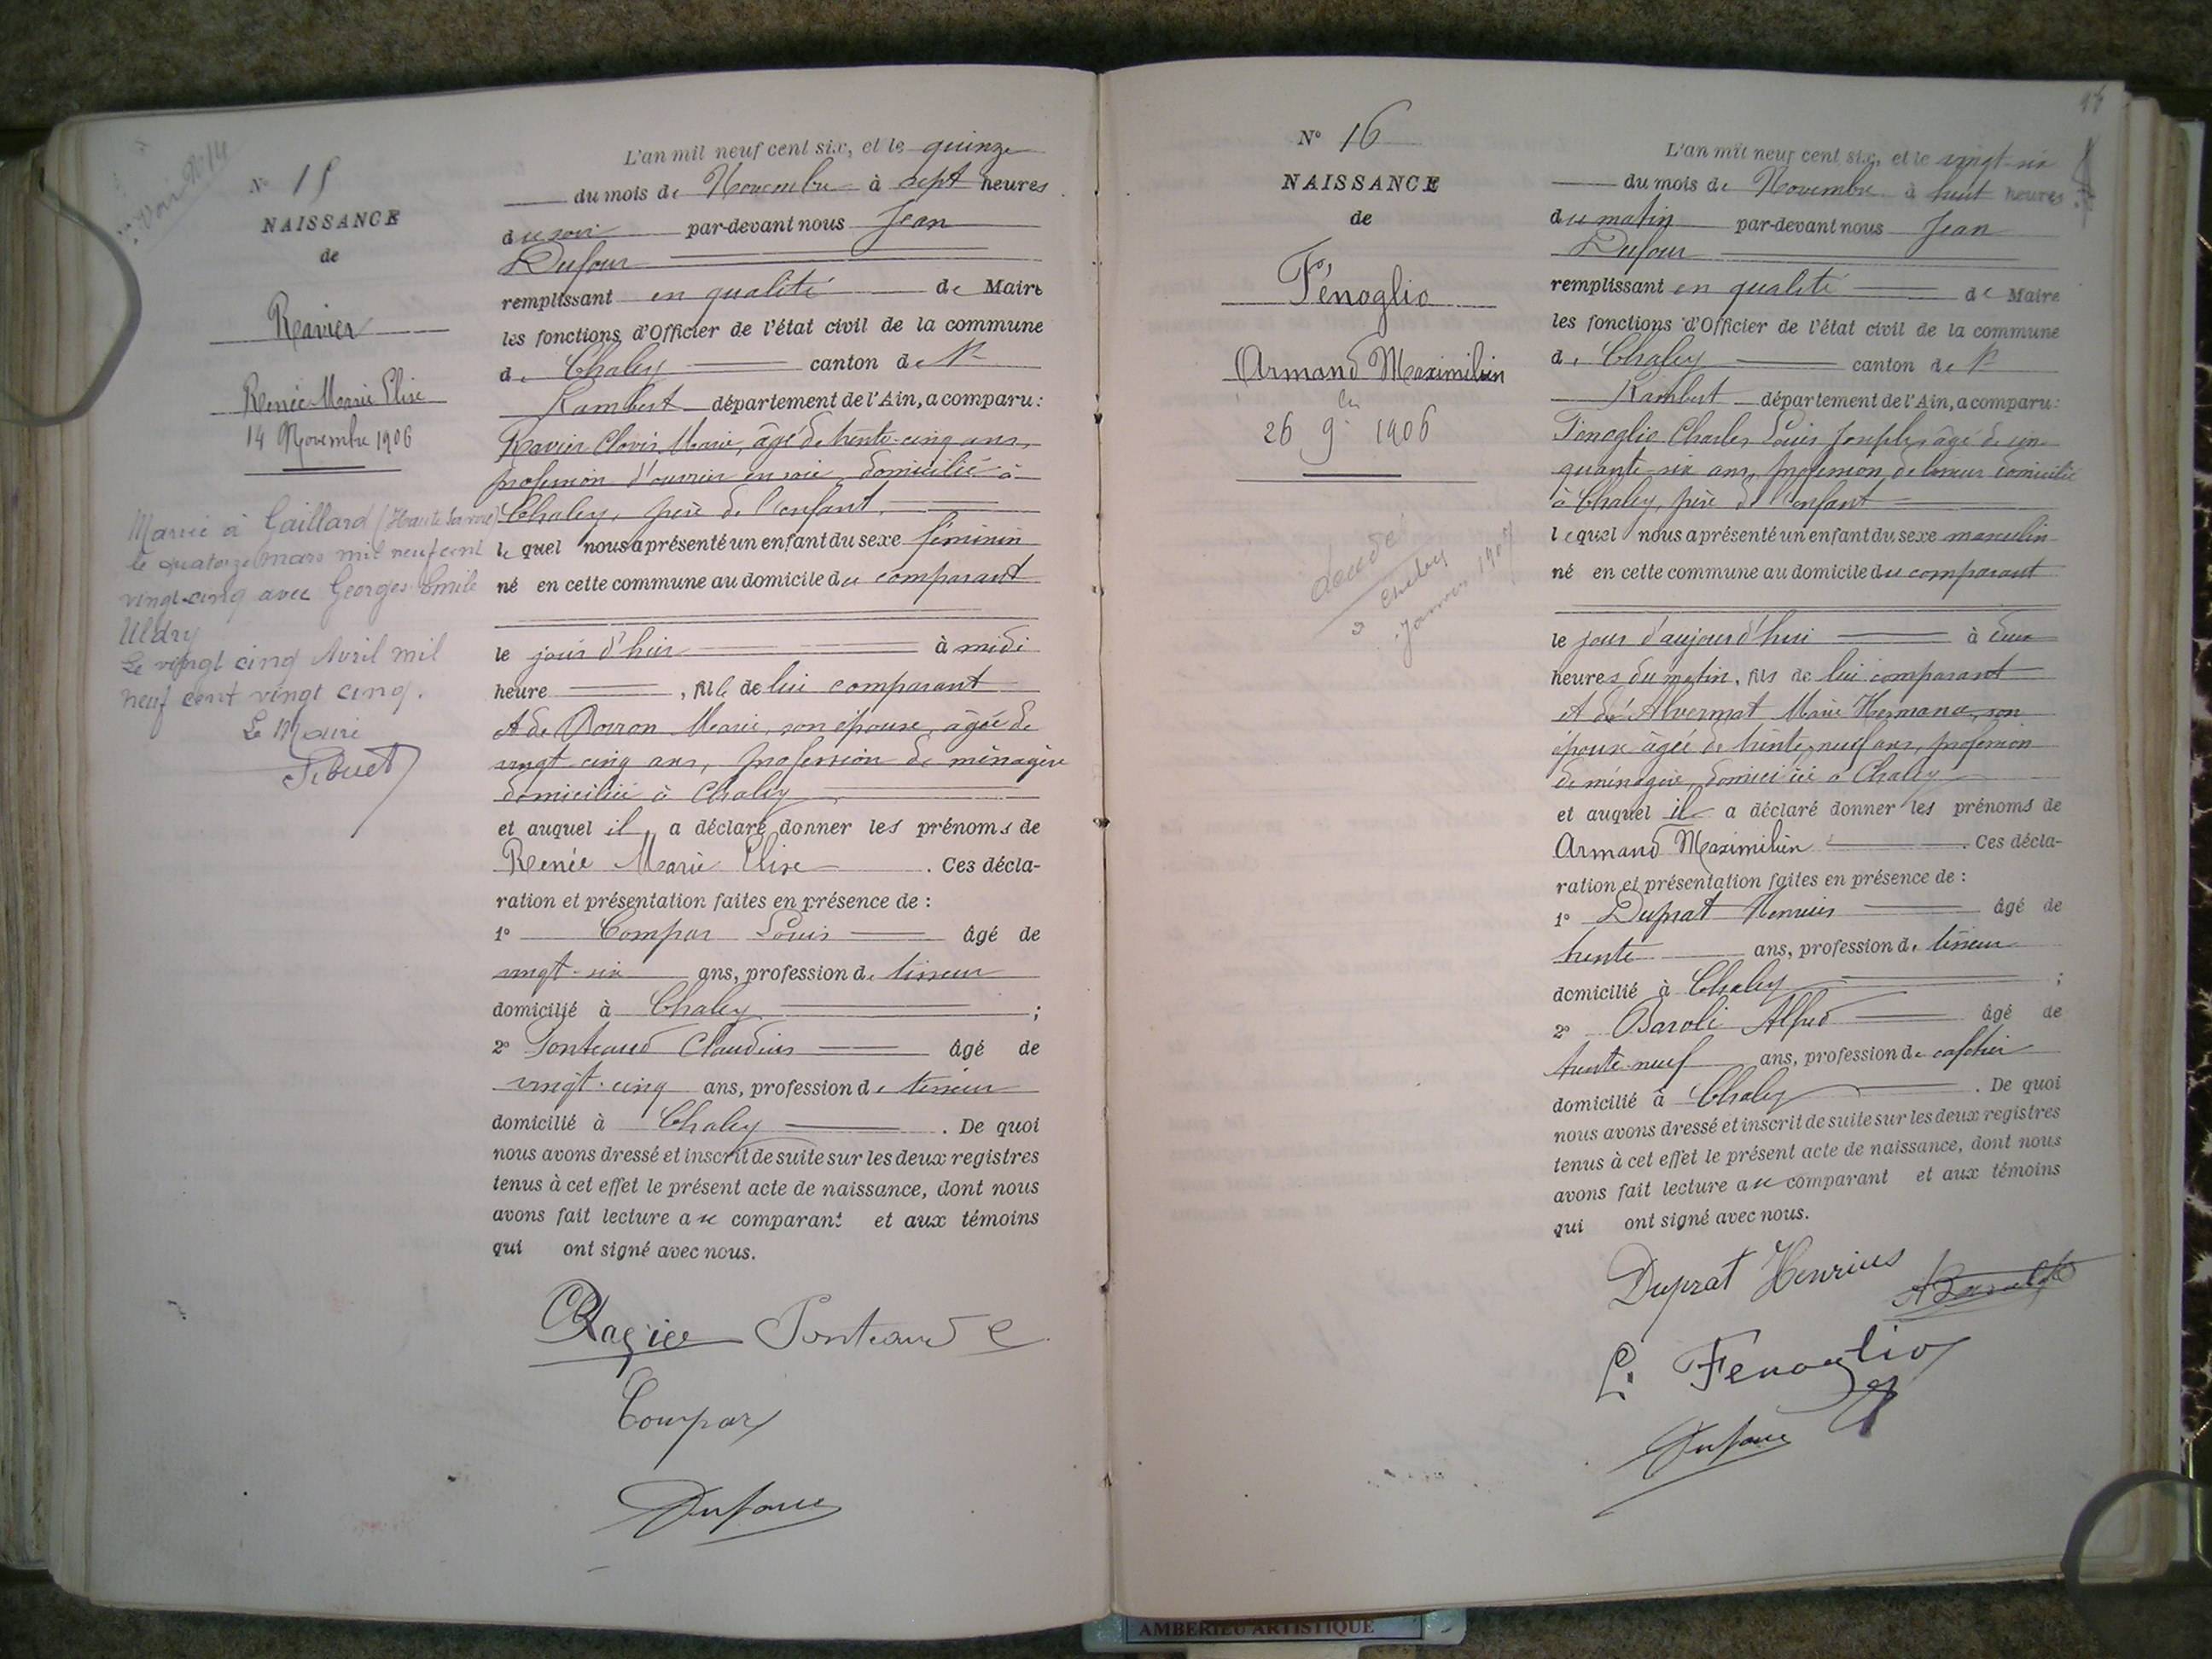 N° 15
NAISSANCE
de
Ravier
Renée Marie Elise
14 Novembre 1906
Mariée à Gaillard (Haute Savoie)
le quatorze mars mil neuf cent
vingt-cinq avec Georges Emile
Uldry
Le vingt cinq Avril mil
neuf cent vingt cinq.
Le Maire
L'an mil neuf cent six, et le quinze
du mois de Novembre à sept heures
du soir par-devant nous Jean
Dufour
remplissant en qualité de Maire
les fonctions d'Officier de l'état civil de la commune
de Chaley canton de St
Rambert département de l'Ain, a comparu :
Ravier Clovis Marie, âgé de trente-cinq ans,
profession d'ouvrier en soie, domicilié à
Chaley, père de l'enfant,
lequel nous a présenté un enfant du sexe féminin
né en cette commune au domicile du comparant
le jour d'hier à midi
heure , fille de lui comparant
et de Marie, son épouse, âgée de
vingt-cinq ans, profession de ménagère
domiciliée à Chaley
et auquel il a déclaré donner les prénoms de
Renée Marie Elise . Ces décla-
ration et présentation faites en présence de :
1° Compar Louis âgé de
vingt-six ans, profession de tisseur
domicilié à Chaley ;
2° Ponteaud Claudius âgé de
vingt-cinq ans, profession de tisseur
domicilié à Chaley . De quoi
nous avons dressé et inscrit de suite sur les deux registres
tenus à cet effet le présent acte de naissance, dont nous
avons fait lecture au comparant et aux témoins
qui ont signé avec nous.
Ravier Ponteaud C
Compar
Dufour
N° 16
NAISSANCE
de
Fénoglio
Armand Maximilien
26 9bre 1906
Chaley
Janvier 1907
L'an mil neuf cent six, et le vingt-six
du mois de Novembre à huit heures
du matin par-devant nous Jean
Dufour
remplissant en qualité de Maire
les fonctions d'Officier de l'état civil de la commune
de Chaley canton de St
Rambert département de l'Ain, a comparu :
Fénoglio Charles Louis Joseph, âgé de cin
quante-six ans, profession de domicilié
à Chaley, père de l'enfant
lequel nous a présenté un enfant du sexe masculin
né en cette commune au domicile du comparant
le jour d'aujourd'hui à deux
heures du matin, fils de lui comparant
et de Alvermat Marie son
épouse âgée de trente-neuf ans, profession
de ménagère, domiciliée à Chaley
et auquel il a déclaré donner les prénoms de
Armand Maximilien . Ces décla-
ration et présentation faites en présence de :
1° Duprat Henrius âgé de
trente ans, profession de tisseur
domicilié à Chaley ;
2° Baroli Alfred âgé de
trente-neuf ans, profession de cafetier
domicilié à Chaley . De quoi
nous avons dressé et inscrit de suite sur les deux registres
tenus à cet effet le présent acte de naissance, dont nous
avons fait lecture au comparant et aux témoins
qui ont signé avec nous.
Duprat Henrius
L. Fenoglio
Dufour
AMBERIEU ARTISTIQUE